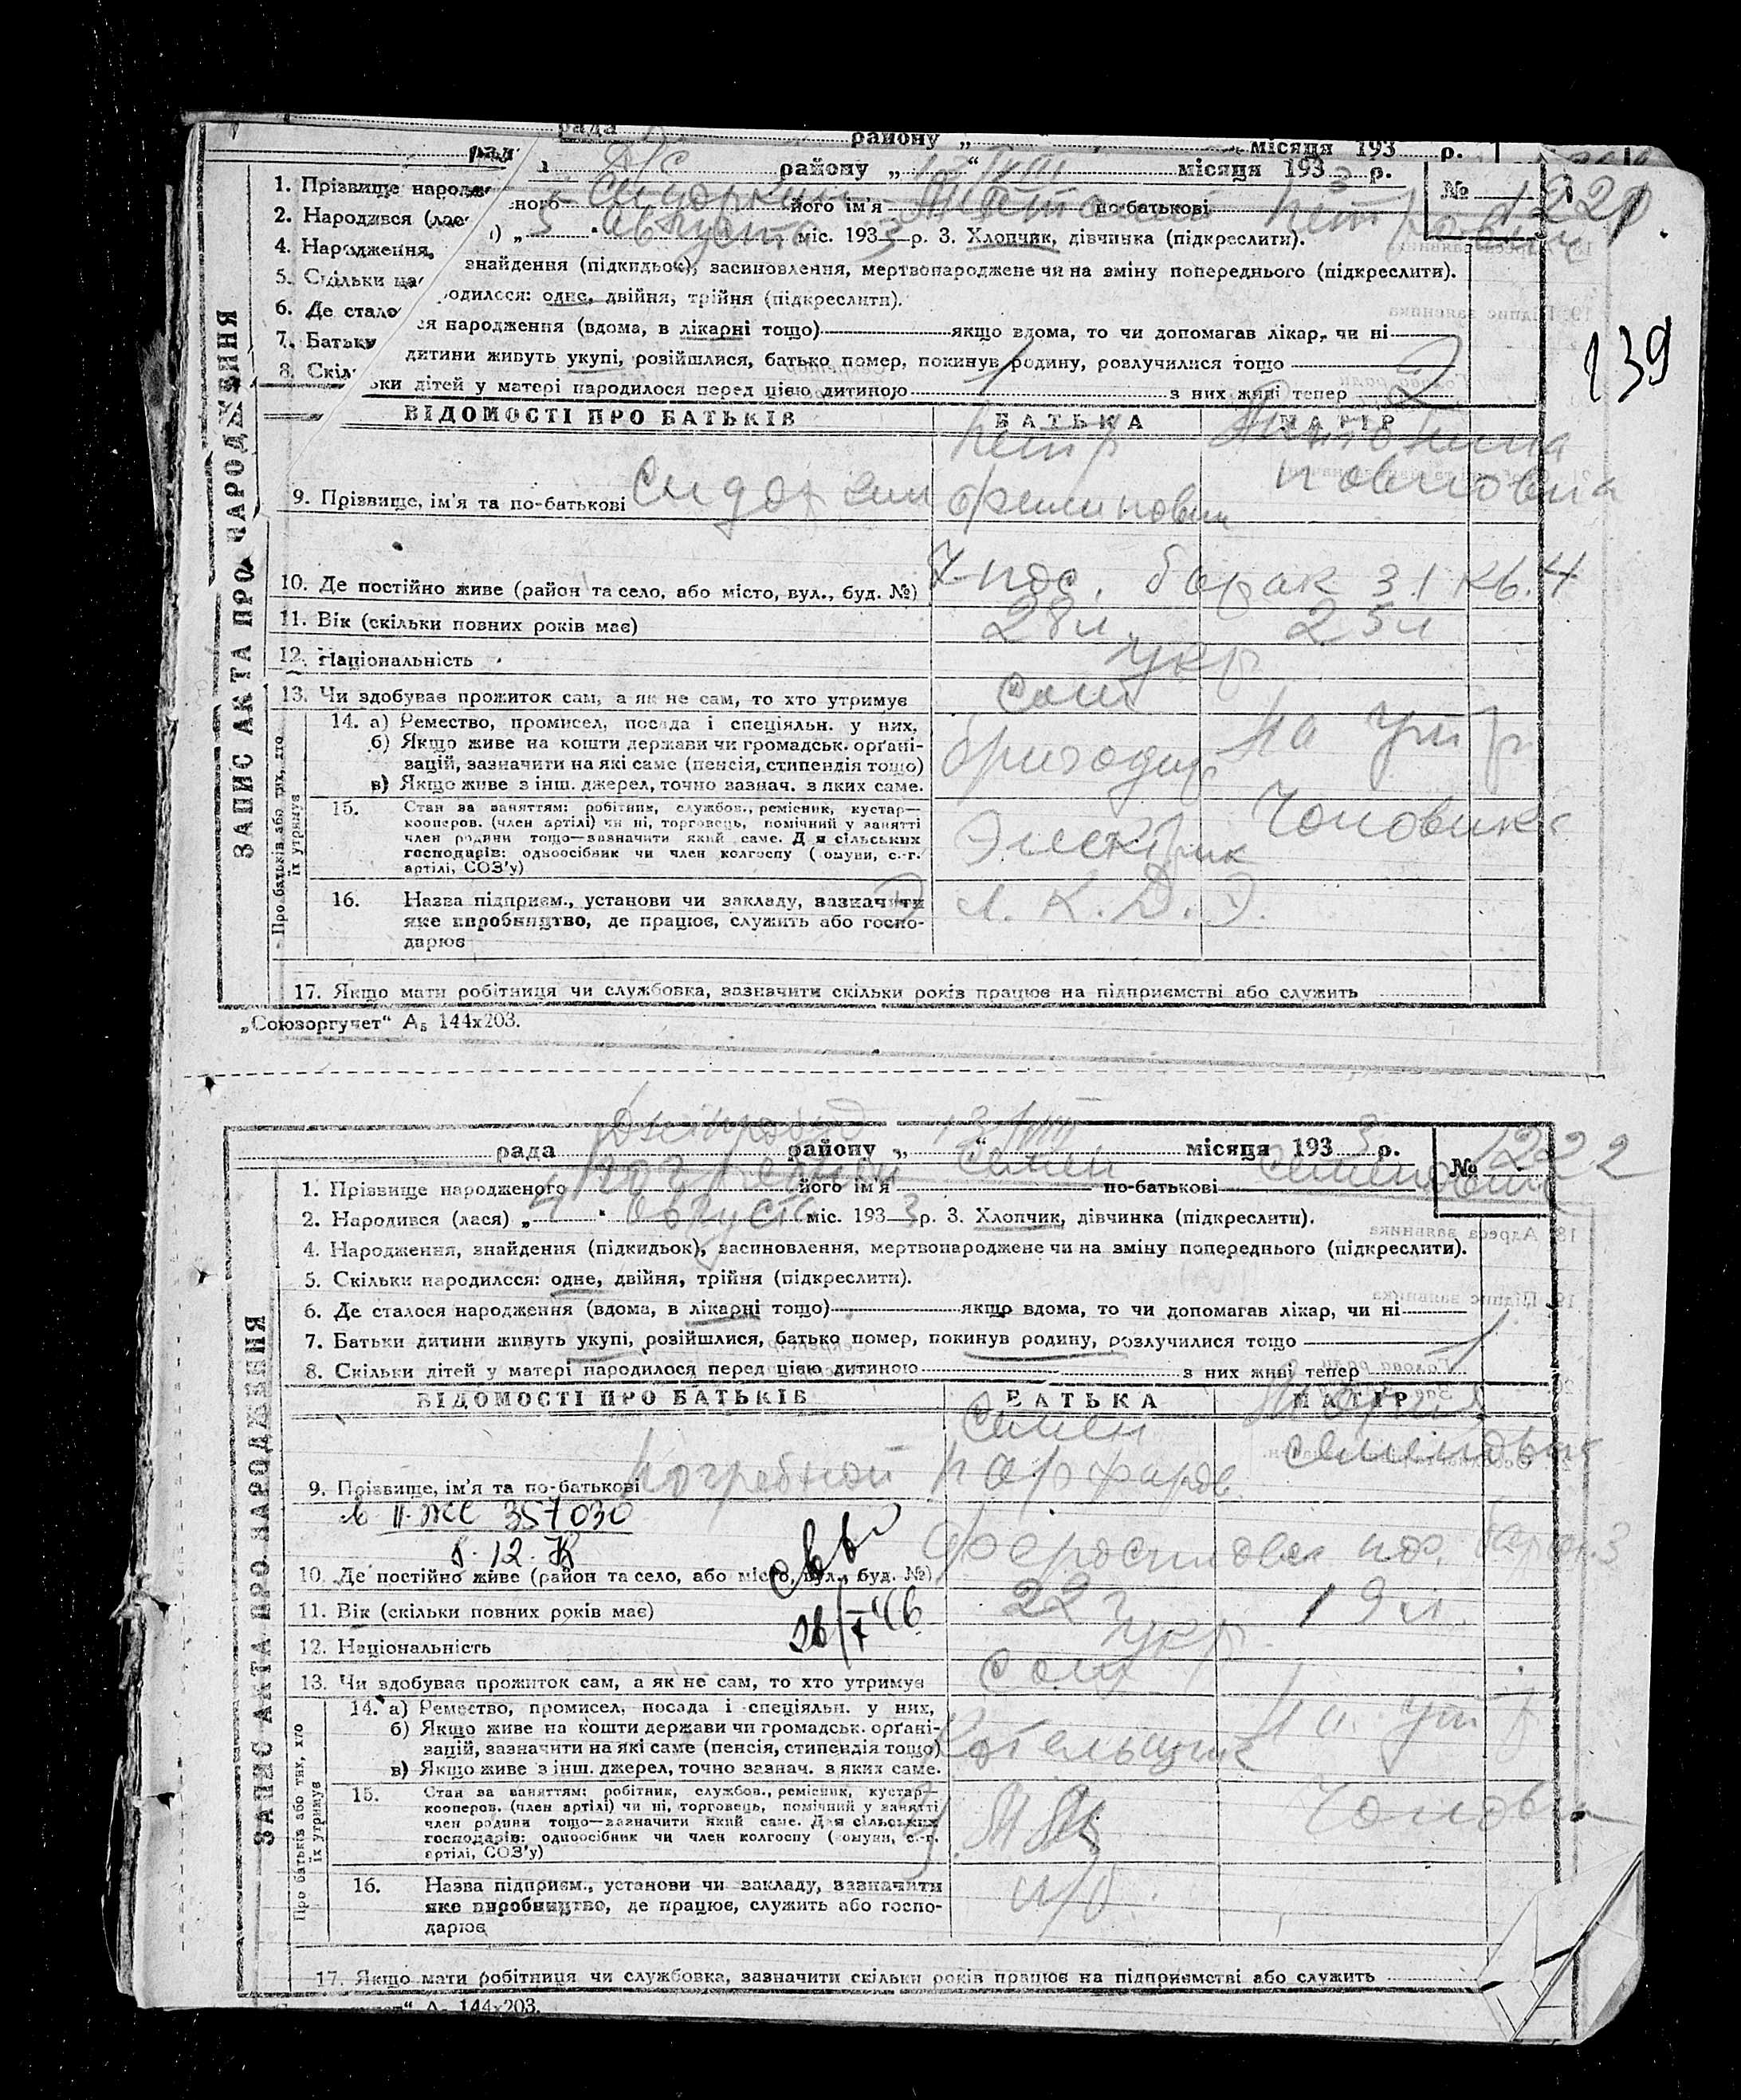 рада району „ місяця 193 р.
рад
Д/С району „13“ VIII місяця 1933 р.
№ 1221
139
1. Прізвище народженого його ім'я Анатолий по-батькові Петрович
2. Народився (лася) „5“ августа міс. 1933 р. 3. Хлопчик, дівчинка (підкреслити).
4. Народження, знайдення (підкидьок), засиновлення, мертвонароджене чи на зміну попереднього (підкреслити).
5. Скільки народилося: одне, двійня, трійня (підкреслити).
6. Де сталося народження (вдома, в лікарні тощо) якщо вдома, то чи допомагав лікар, чи ні
7. Батьки дитини живуть укупі, розійшлися, батько помер, покинув родину, розлучилися тощо
8. Скільки дітей у матері народилося перед цією дитиною 1 з них живі тепер 2
ЗАПИС АКТА ПРО НАРОДЖЕННЯ
ВІДОМОСТІ ПРО БАТЬКІВ БАТЬКА МАТІР
Петр Антонина
9. Прізвище, ім'я та по-батькові Сидоркин
10. Де постійно живе (район та село, або місто, вул., буд. №) 7 пос. барак 31 кв. 4
11. Вік (скільки повних років має) 28 л. 25 л
12. Національність укр
13. Чи здобуває прожиток сам, а як не сам, то хто утримує сам
Про батьків або тих, хто їх утримує
14. а) Ремество, промисел, посада і спеціяльн. у них, бригадир На утр
б) Якщо живе на кошти держави чи громадськ. органі-
зацій, зазначити на які саме (пенсія, стипендія тощо)
в) Якщо живе з інш. джерел, точно зазнач. з яких саме.
15. Стан за заняттям: робітник, службов., ремісник, кустар— Чоловика
кооперов. (член артілі) чи ні, торговець, помічний у занятті
член родини тощо—зазначити який саме. Для сільських Электрик
господарів: одноосібник чи член колгоспу (комуни, с.-г.
артілі, СОЗ'у)
16. Назва підприєм., установи чи закладу, зазначити
яке виробництво, де працює, служить або госпо-
дарює
17. Якщо мати робітниця чи службовка, зазначити скільки років працює на підприємстві або служить
„Союзоргучет“ А₅ 144х203.
рада Дніпробуд району „13“ VIII місяця 1933 р.
№ 1222
1. Прізвище народженого Погребной його ім'я Семен по-батькові Семенович
2. Народився (лася) „4“ августа міс. 1933 р. 3. Хлопчик, дівчинка (підкреслити).
4. Народження, знайдення (підкидьок), засиновлення, мертвонароджене чи на зміну попереднього (підкреслити).
5. Скільки народилося: одне, двійня, трійня (підкреслити).
6. Де сталося народження (вдома, в лікарні тощо) якщо вдома, то чи допомагав лікар, чи ні
7. Батьки дитини живуть укупі, розійшлися, батько помер, покинув родину, розлучилися тощо
8. Скільки дітей у матері народилося перед цією дитиною з них живі тепер 1
ЗАПИС АКТА ПРО НАРОДЖЕННЯ
ВІДОМОСТІ ПРО БАТЬКІВ БАТЬКА МАТІР
Семен Мария
9. Прізвище, ім'я та по-батькові Погребной Семеновна
II-ЖС 357030
10. Де постійно живе (район та село, або місто, вул., буд. №)
11. Вік (скільки повних років має) 22 19 л.
12. Національність укр.
13. Чи здобуває прожиток сам, а як не сам, то хто утримує сам
Про батьків або тих, хто їх утримує
14. а) Ремество, промисел, посада і спеціяльн. у них, На утр
б) Якщо живе на кошти держави чи громадськ. органі-
зацій, зазначити на які саме (пенсія, стипендія тощо) Котельщик
в) Якщо живе з інш. джерел, точно зазнач. з яких саме.
15. Стан за заняттям: робітник, службов., ремісник, кустар—
кооперов. (член артілі) чи ні, торговець, помічний у занятті
член родини тощо—зазначити який саме. Для сільських
господарів: одноосібник чи член колгоспу (комуни, с.-г.
артілі, СОЗ'у)
16. Назва підприєм., установи чи закладу, зазначити
яке виробництво, де працює, служить або госпо-
дарює
17. Якщо мати робітниця чи службовка, зазначити скільки років працює на підприємстві або служить
А₅ 144х203.